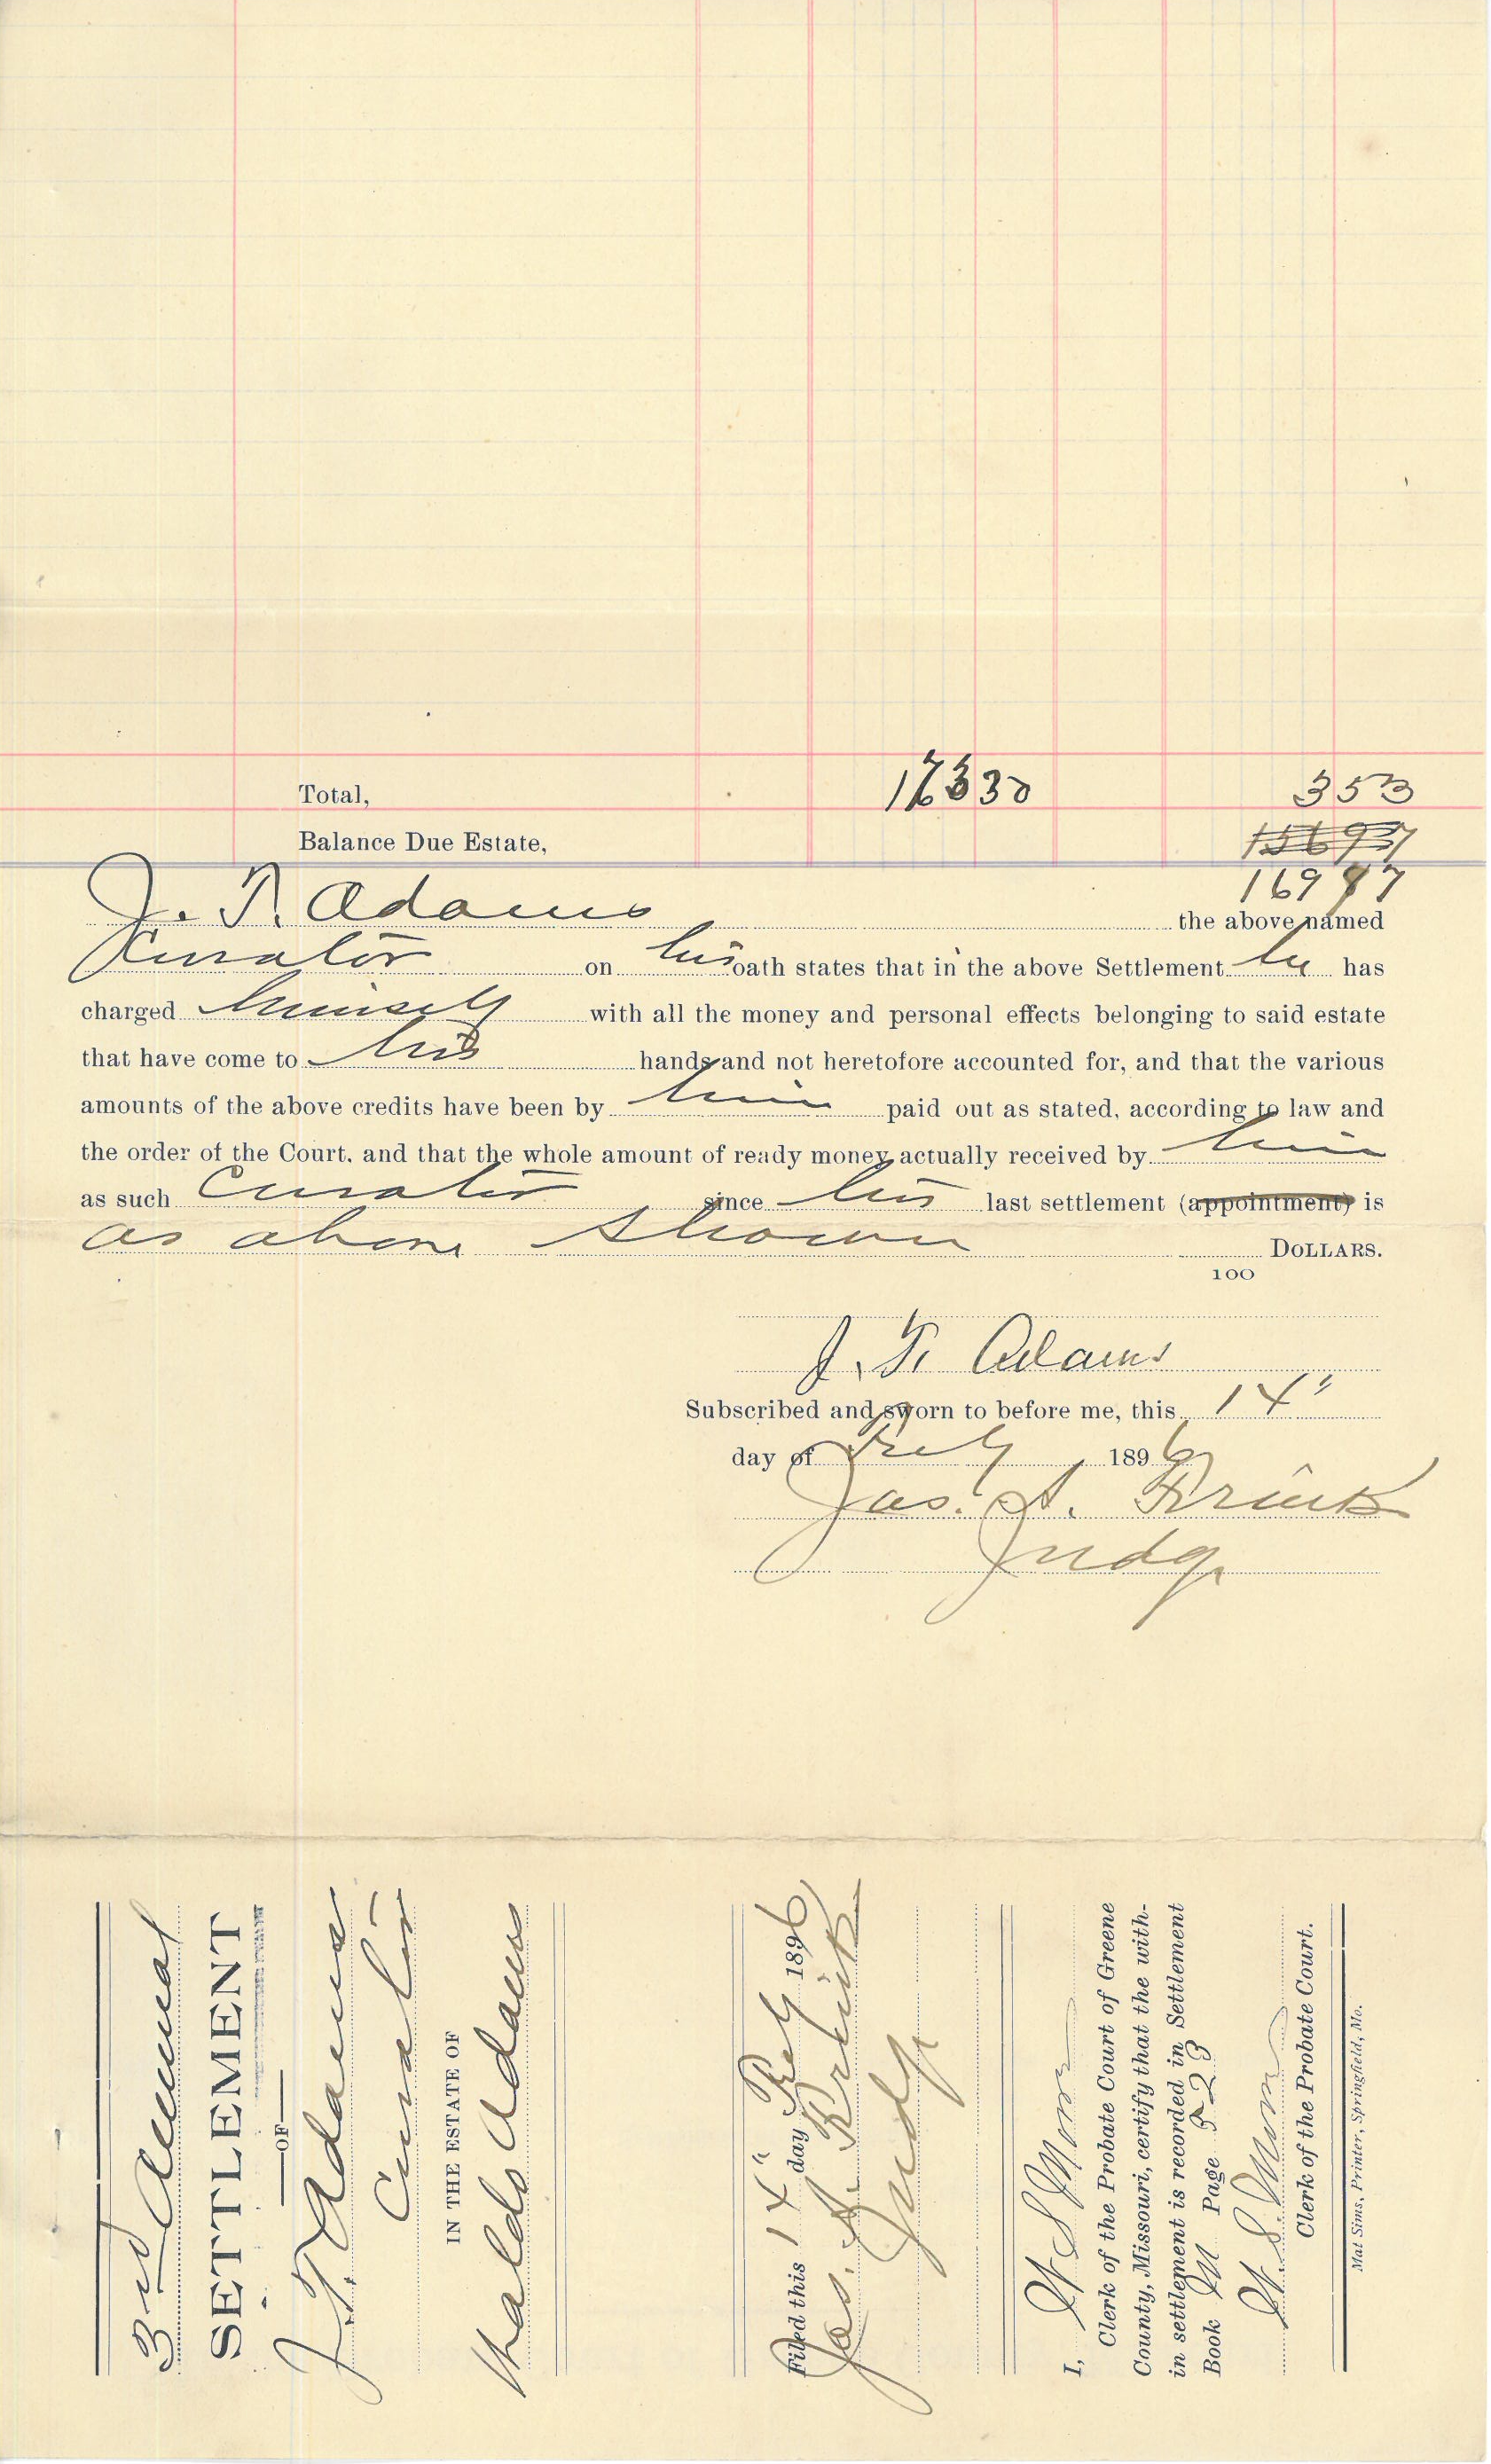 Total, 17330 353
Balance Due Estate, 15697
16977
J. T. Adams the above named
Curator on his oath states that in the above Settlement he has
charged himself with all the money and personal effects belonging to said estate
that have come to his hands and not heretofore accounted for, and that the various
amounts of the above credits have been by him paid out as stated, according to law and
the order of the Court, and that the whole amount of ready money actually received by him
as such Curator since his last settlement (appointment) is
as above shown DOLLARS.
100
J. T. Adams
Subscribed and sworn to before me, this 14"
day of Feby 1896
Jas. A. Frink
Judge
3rd Annual
SETTLEMENT
OF
J. T. Adams
Curator
IN THE ESTATE OF
Waldo Adams
Filed this 14" day Feby 1896
Jas. A. Frink
Judge
I, W S
Clerk of the Probate Court of Greene
County, Missouri, certify that the with-
in settlement is recorded in Settlement
Book M Page 523
W. S.
Clerk of the Probate Court.
Mat Sims, Printer, Springfield, Mo.